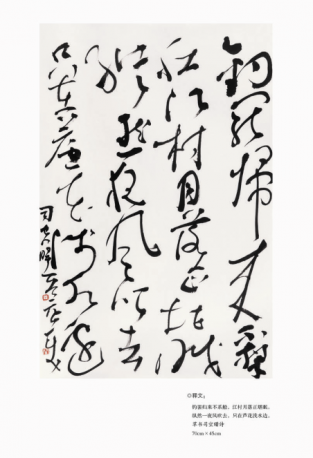 釣罷歸來不繫
船江村月落正堪眠
縱然一夜風吹去
只在蘆花淺水邊
司空曙
◎释文:
钓罢归来不系船,江村月落正堪眠。
纵然一夜风吹去,只在芦花浅水边。
草书司空曙诗
70cm×45cm